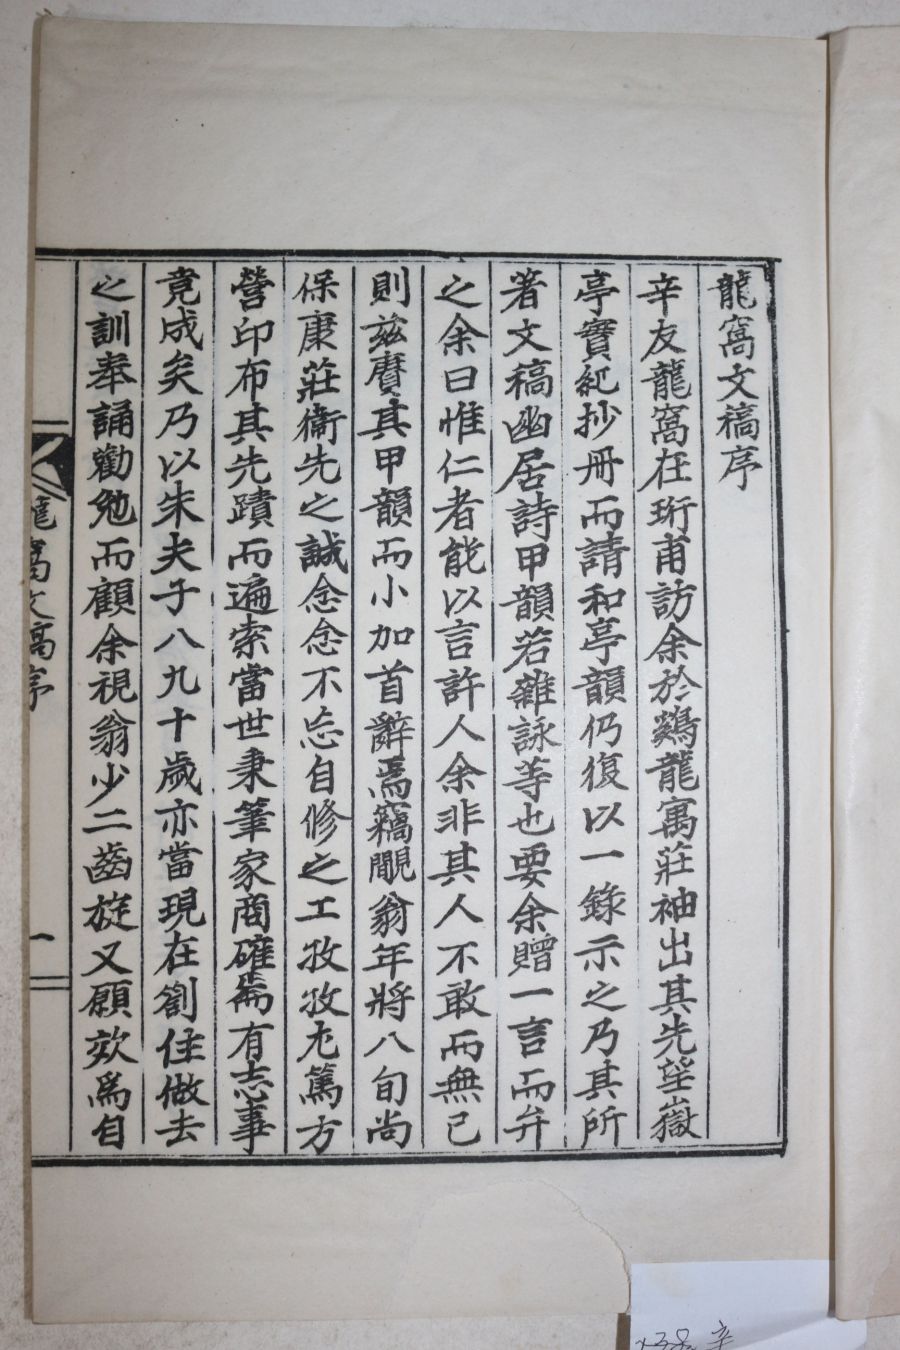 龍窩文稿序
辛友龍窩在珩甫訪余於鷄龍寓莊袖出其先望嶽
亭寶紀抄冊而請和亭韻仍復以一錄示之乃其所
著文稿幽居詩甲韻若雜詠等也要余贈一言而弁
之余曰惟仁者能以言許人余非其人不敢而無已
則玆賡其甲韻而小加首辭焉竊覵翁年將八旬尚
保康莊衛先之誠念念不忘自修之工孜孜尤篤方
營印布其先蹟而遍索當世秉筆家商確焉有志事
竟成矣乃以朱夫子八九十歲亦當現在劄住做去
之訓奉誦勸勉而顧余視翁少二齒旋又願效爲自
龍窩文稿序
一
辛